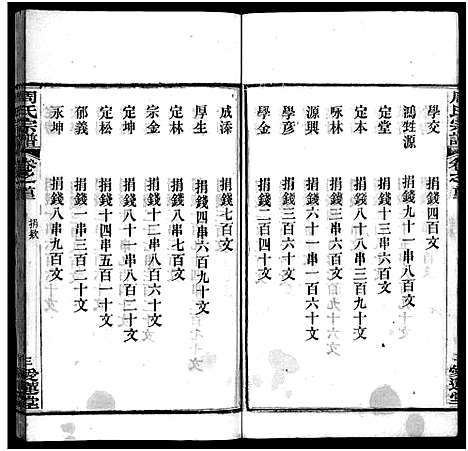 周氏宗譜
學交 捐錢八串三百二十文
鴻甡源 捐錢九十一串八百文
定堂 捐錢十三串六百文
定本 捐錢八串三百九十文
咏林 捐錢三串一百六十文
源興 捐錢六十一串一百六十文
學彥 捐錢三百六十文
學金 捐錢二百四十文
成漆 捐錢七百文
厚生 捐錢四串六百九十文
定林 捐錢八串七百文
宗金 捐錢十二串八百六十文
定坤 捐錢八十一串八百二十文
定松 捐錢十四串五百一十文
郁義 捐錢一串三百二十文
永坤 捐錢八串九百文
周氏宗譜
捐欵
三 愛蓮堂